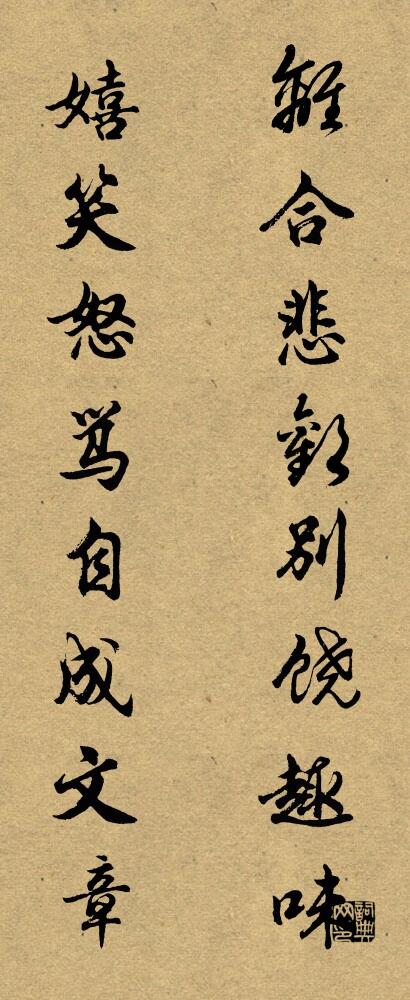 離合悲歡別饶趣味
嬉笑怒骂自成文章
詞典
网印